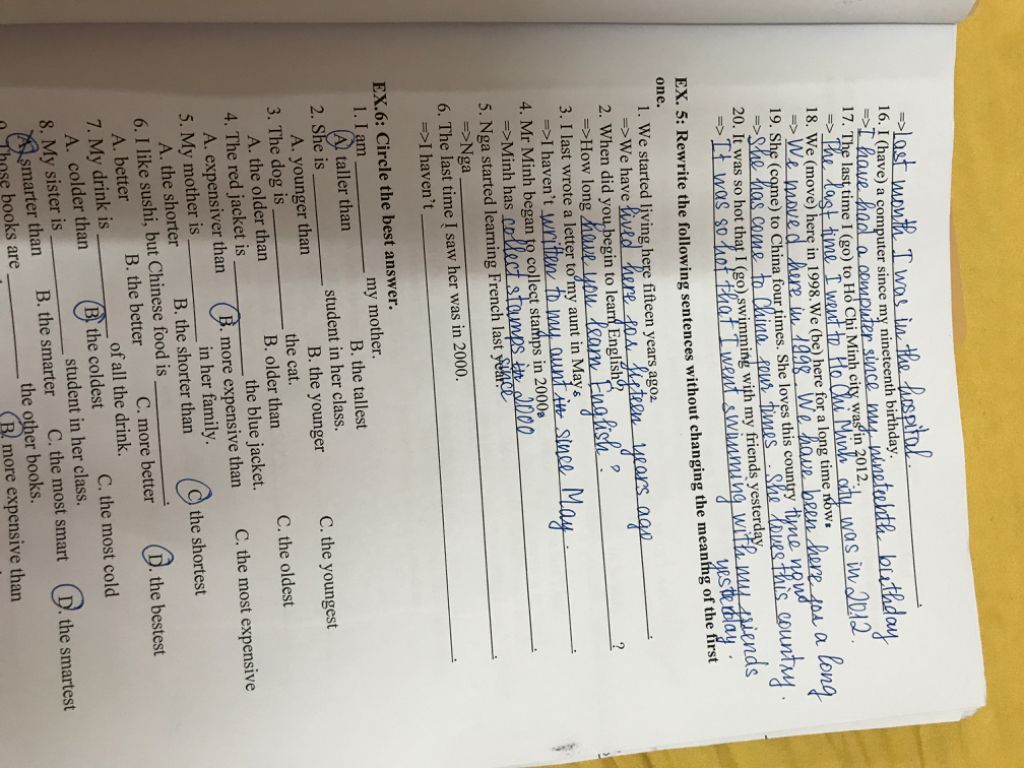 => Last month I was in the hospital.
16. I (have) a computer since my nineteenth birthday.
=> I have had a computer since my nineteehth birthday
17. The last time I (go) to Ho Chi Minh city was in 2012.
=> The last time I went to Ho Chi Minh city was in 2012.
18. We (move) here in 1998. We (be) here for a long time now.
=> We moved here in 1998. We have been here for a long
time now
19. She (come) to China four times. She loves this country
=> She has come to China four times. She loves this country.
20. It was so hot that I (go) swimming with my friends yesterday.
=> It was so hot that I went swimming with my friends
yesterday.
EX. 5: Rewrite the following sentences without changing the meaning of the first
one.
1. We started living here fifteen years ago.
=>We have lived here for fifteen years ago.
2. When did you begin to learn English?
=>How long have you learn English? ?
3. I last wrote a letter to my aunt in May.
=>I haven't written to my aunt since May.
4. Mr Minh began to collect stamps in 2000.
=>Minh has collect stamps since 2000.
5. Nga started learning French last year.
=>Nga .
6. The last time I saw her was in 2000.
=>I haven't .
EX.6: Circle the best answer.
1. I am my mother.
A. taller than B. the tallest
2. She is student in her class.
A. younger than B. the younger C. the youngest
3. The dog is the cat.
A. the older than B. older than C. the oldest
4. The red jacket is the blue jacket.
A. expensiver than B. more expensive than C. the most expensive
5. My mother is in her family.
A. the shorter B. the shorter than C. the shortest
6. I like sushi, but Chinese food is .
A. better B. the better C. more better D. the bestest
7. My drink is of all the drink.
A. colder than B. the coldest C. the most cold
8. My sister is student in her class.
A. smarter than B. the smarter C. the most smart D. the smartest
books are the other books.
B. more expensive than